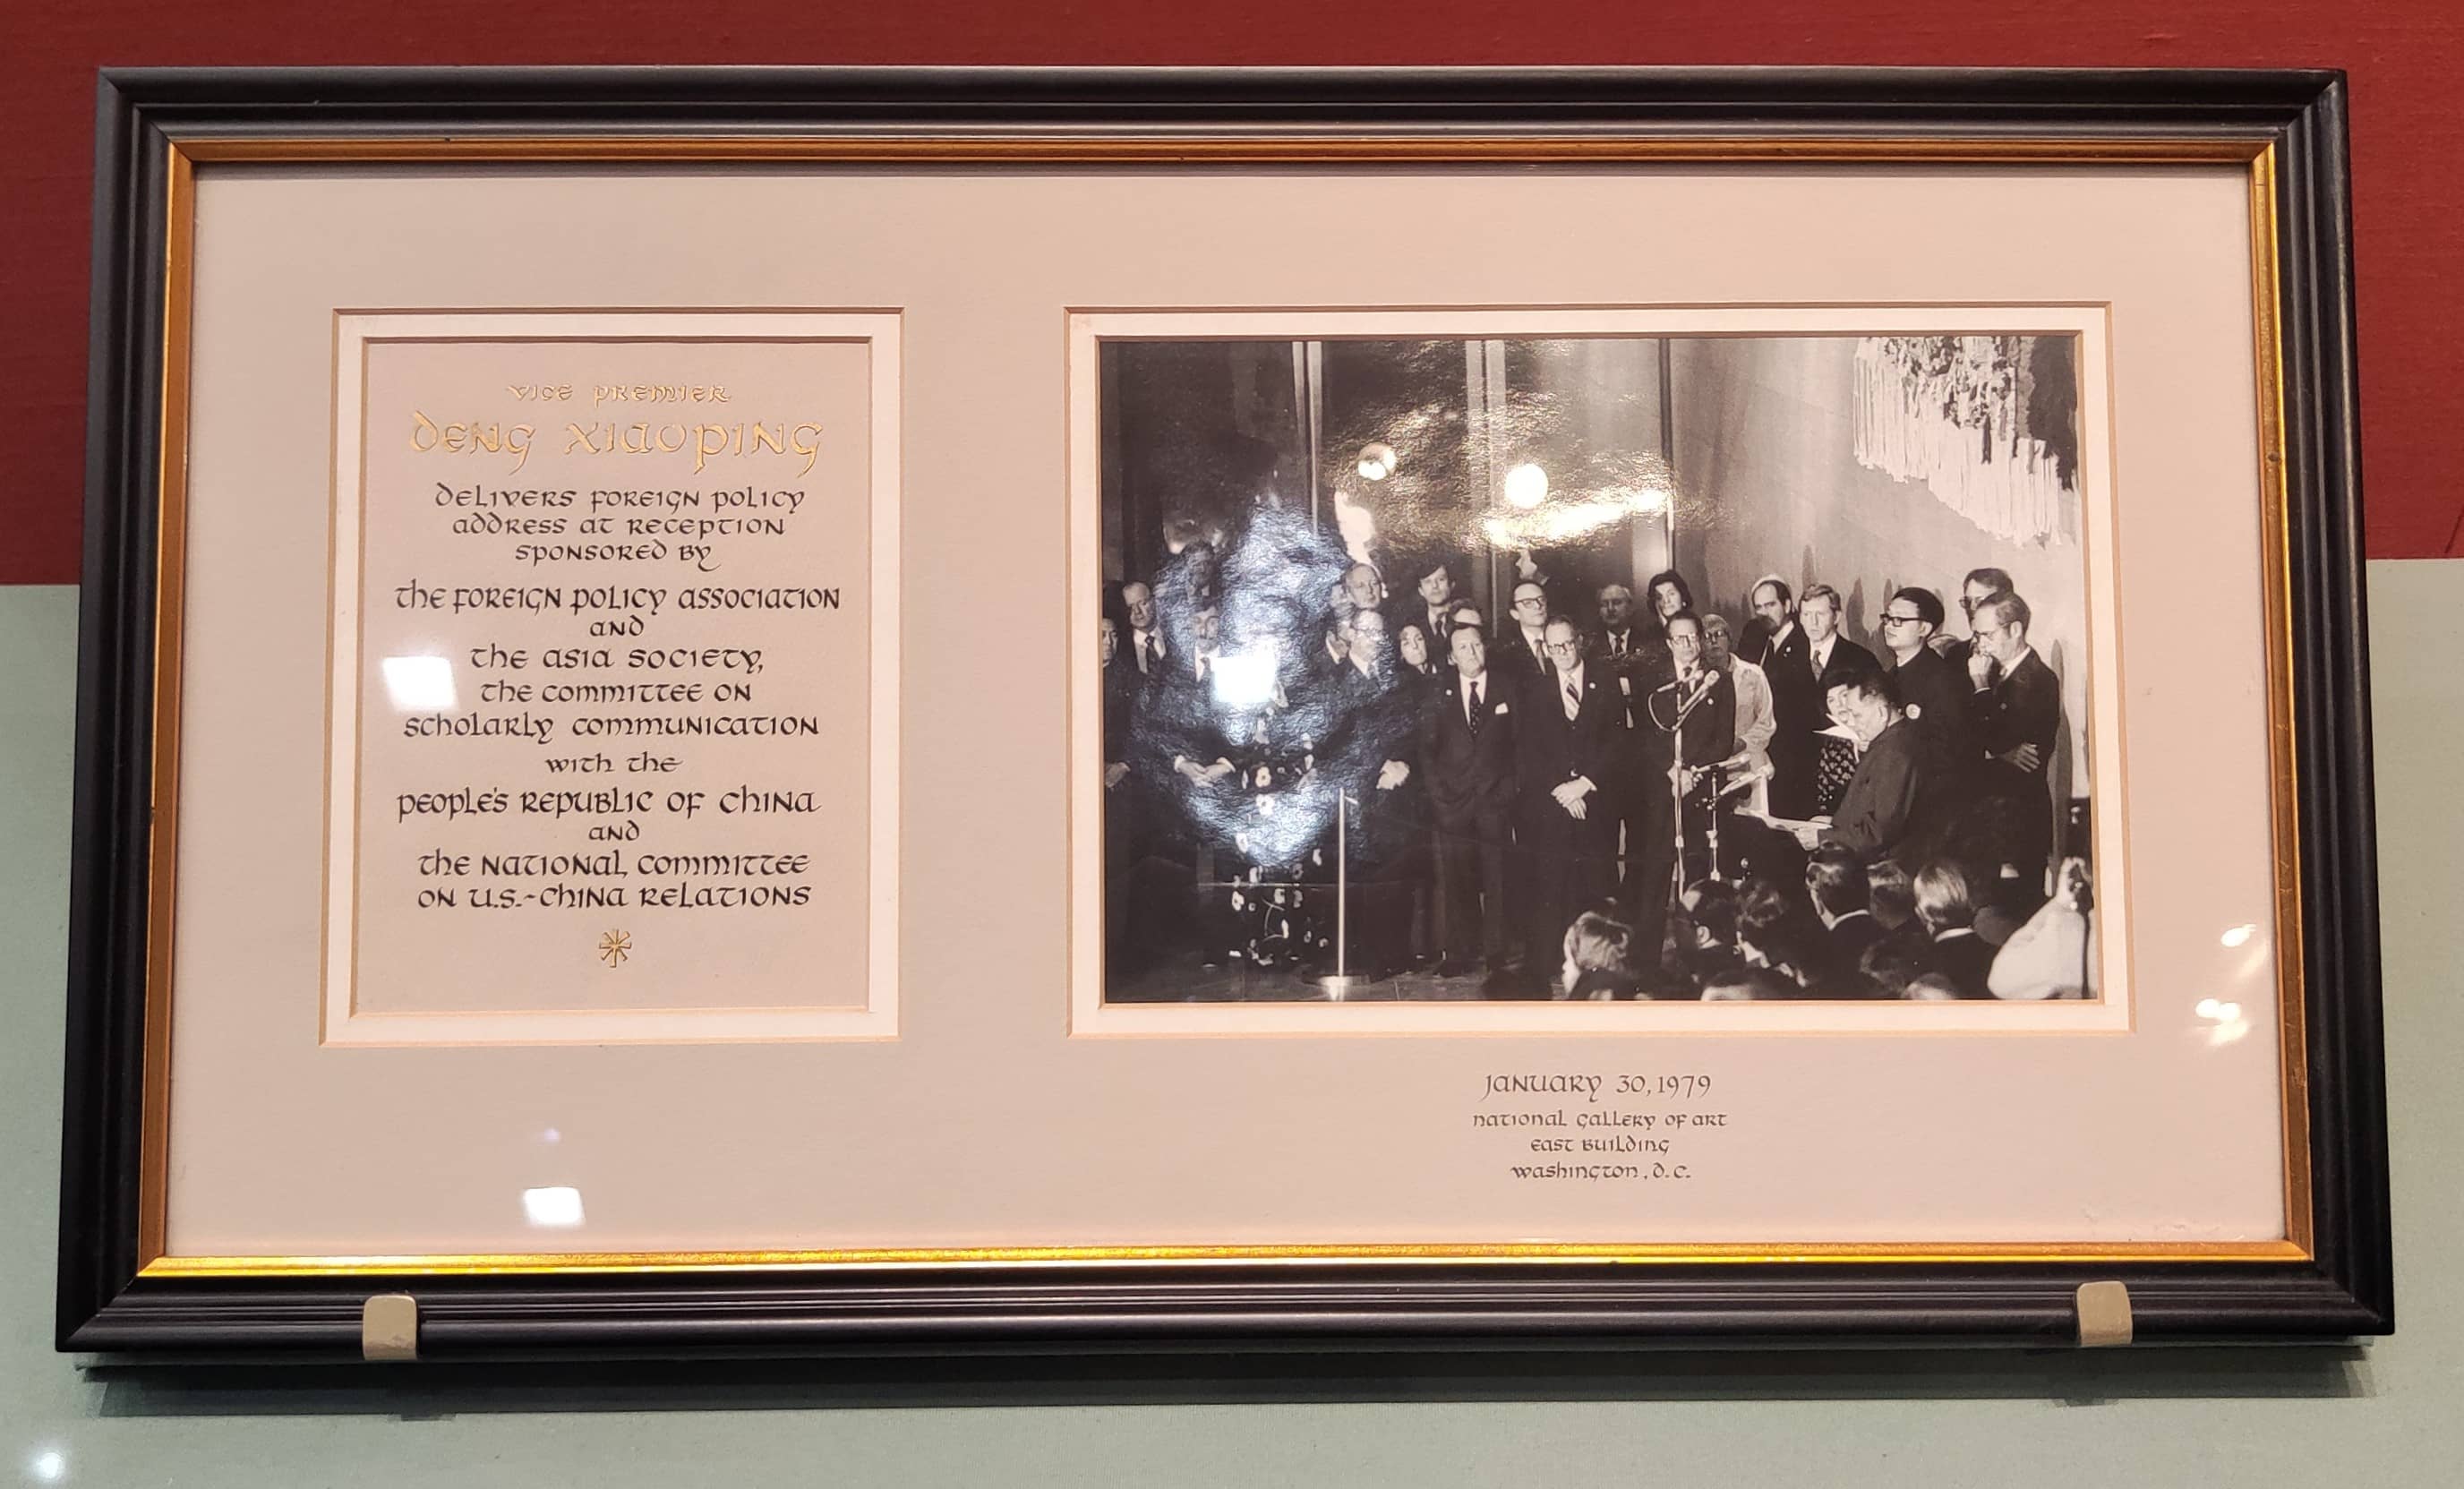 VICE PREMIER
DENG XIAOPING
DELIVERS FOREIGN POLICY
ADDRESS AT RECEPTION
SPONSORED BY
THE FOREIGN POLICY ASSOCIATION
AND
THE ASIA SOCIETY,
THE COMMITTEE ON
SCHOLARLY COMMUNICATION
WITH THE
PEOPLE'S REPUBLIC OF CHINA
AND
THE NATIONAL COMMITTEE
ON U.S.-CHINA RELATIONS
JANUARY 30, 1979
NATIONAL GALLERY OF ART
EAST BUILDING
WASHINGTON, D.C.